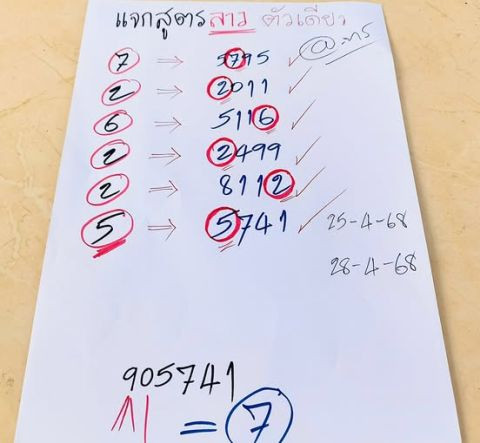 แจกสูตรลาว ตัวเดียว
7 ⇒ 5795 ✓
2 ⇒ 2011 ✓
6 ⇒ 5116 ✓
2 ⇒ 2499 ✓
2 ⇒ 8112 ✓
5 ⇒ 5741 ✓ 25-4-68
28-4-68
905741
= 7